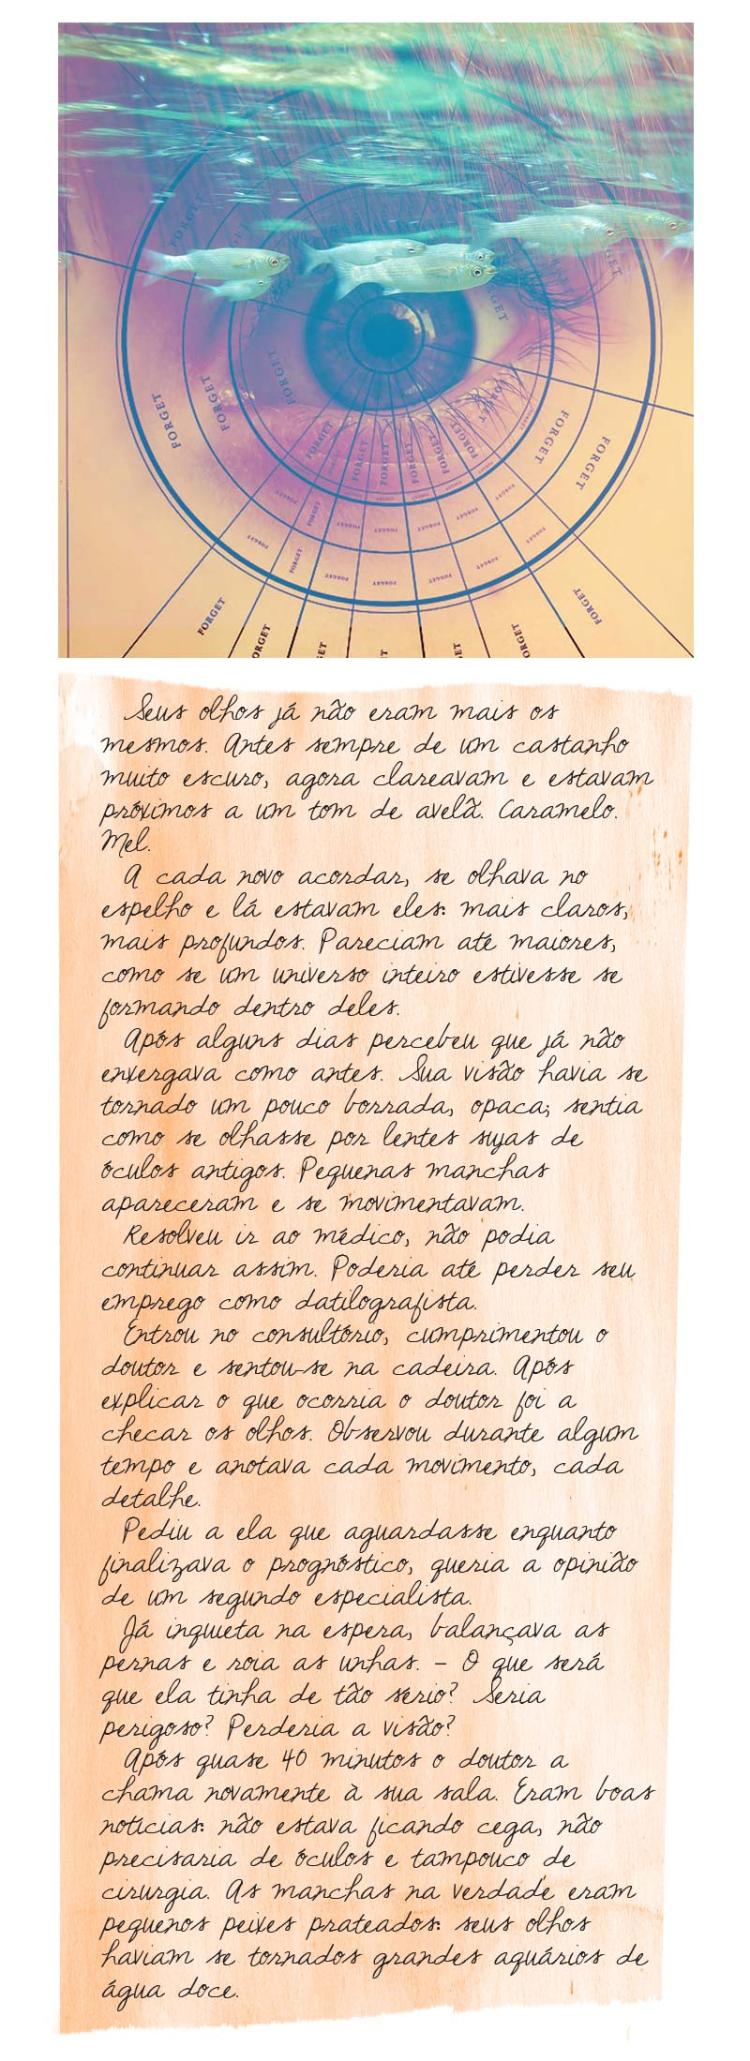 FORGET
FORGET
FORGET
FORGET
FORGET
FORGET
FORGET
FORGET
FORGET
FORGET
FORGET
FORGET
FORGET
FORGET
ORGET
GET
ET
ET
ORGET
FORGET
Seus olhos já não eram mais os
mesmos. Antes sempre de um castanho
muito escuro, agora clareavam e estavam
próximos a um tom de avelã. Caramelo.
Mel.
A cada novo acordar, se olhava no
espelho e lá estavam eles: mais claros,
mais profundos. Pareciam até maiores,
como se um universo inteiro estivesse se
formando dentro deles.
Após alguns dias percebeu que já não
enxergava como antes. Sua visão havia se
tornado um pouco borrada, opaca; sentia
como se olhasse por lentes sujas de
óculos antigos. Pequenas manchas
apareceram e se movimentavam.
Resolveu ir ao médico, não podia
continuar assim. Poderia até perder seu
emprego como datilografista.
Entrou no consultório, cumprimentou o
doutor e sentou-se na cadeira. Após
explicar o que ocorria o doutor foi a
checar os olhos. Observou durante algum
tempo e anotava cada movimento, cada
detalhe.
Pediu a ela que aguardasse enquanto
finalizava o prognóstico, queria a opinião
de um segundo especialista.
Já inquieta na espera, balançava as
pernas e roia as unhas. - O que será
que ela tinha de tão sério? Seria
perigoso? Perderia a visão?
Após quase 40 minutos o doutor a
chama novamente à sua sala. Eram boas
notícias: não estava ficando cega, não
precisaria de óculos e tampouco de
cirurgia. As manchas na verdade eram
pequenos peixes prateados: seus olhos
haviam se tornados grandes aquários de
água doce.